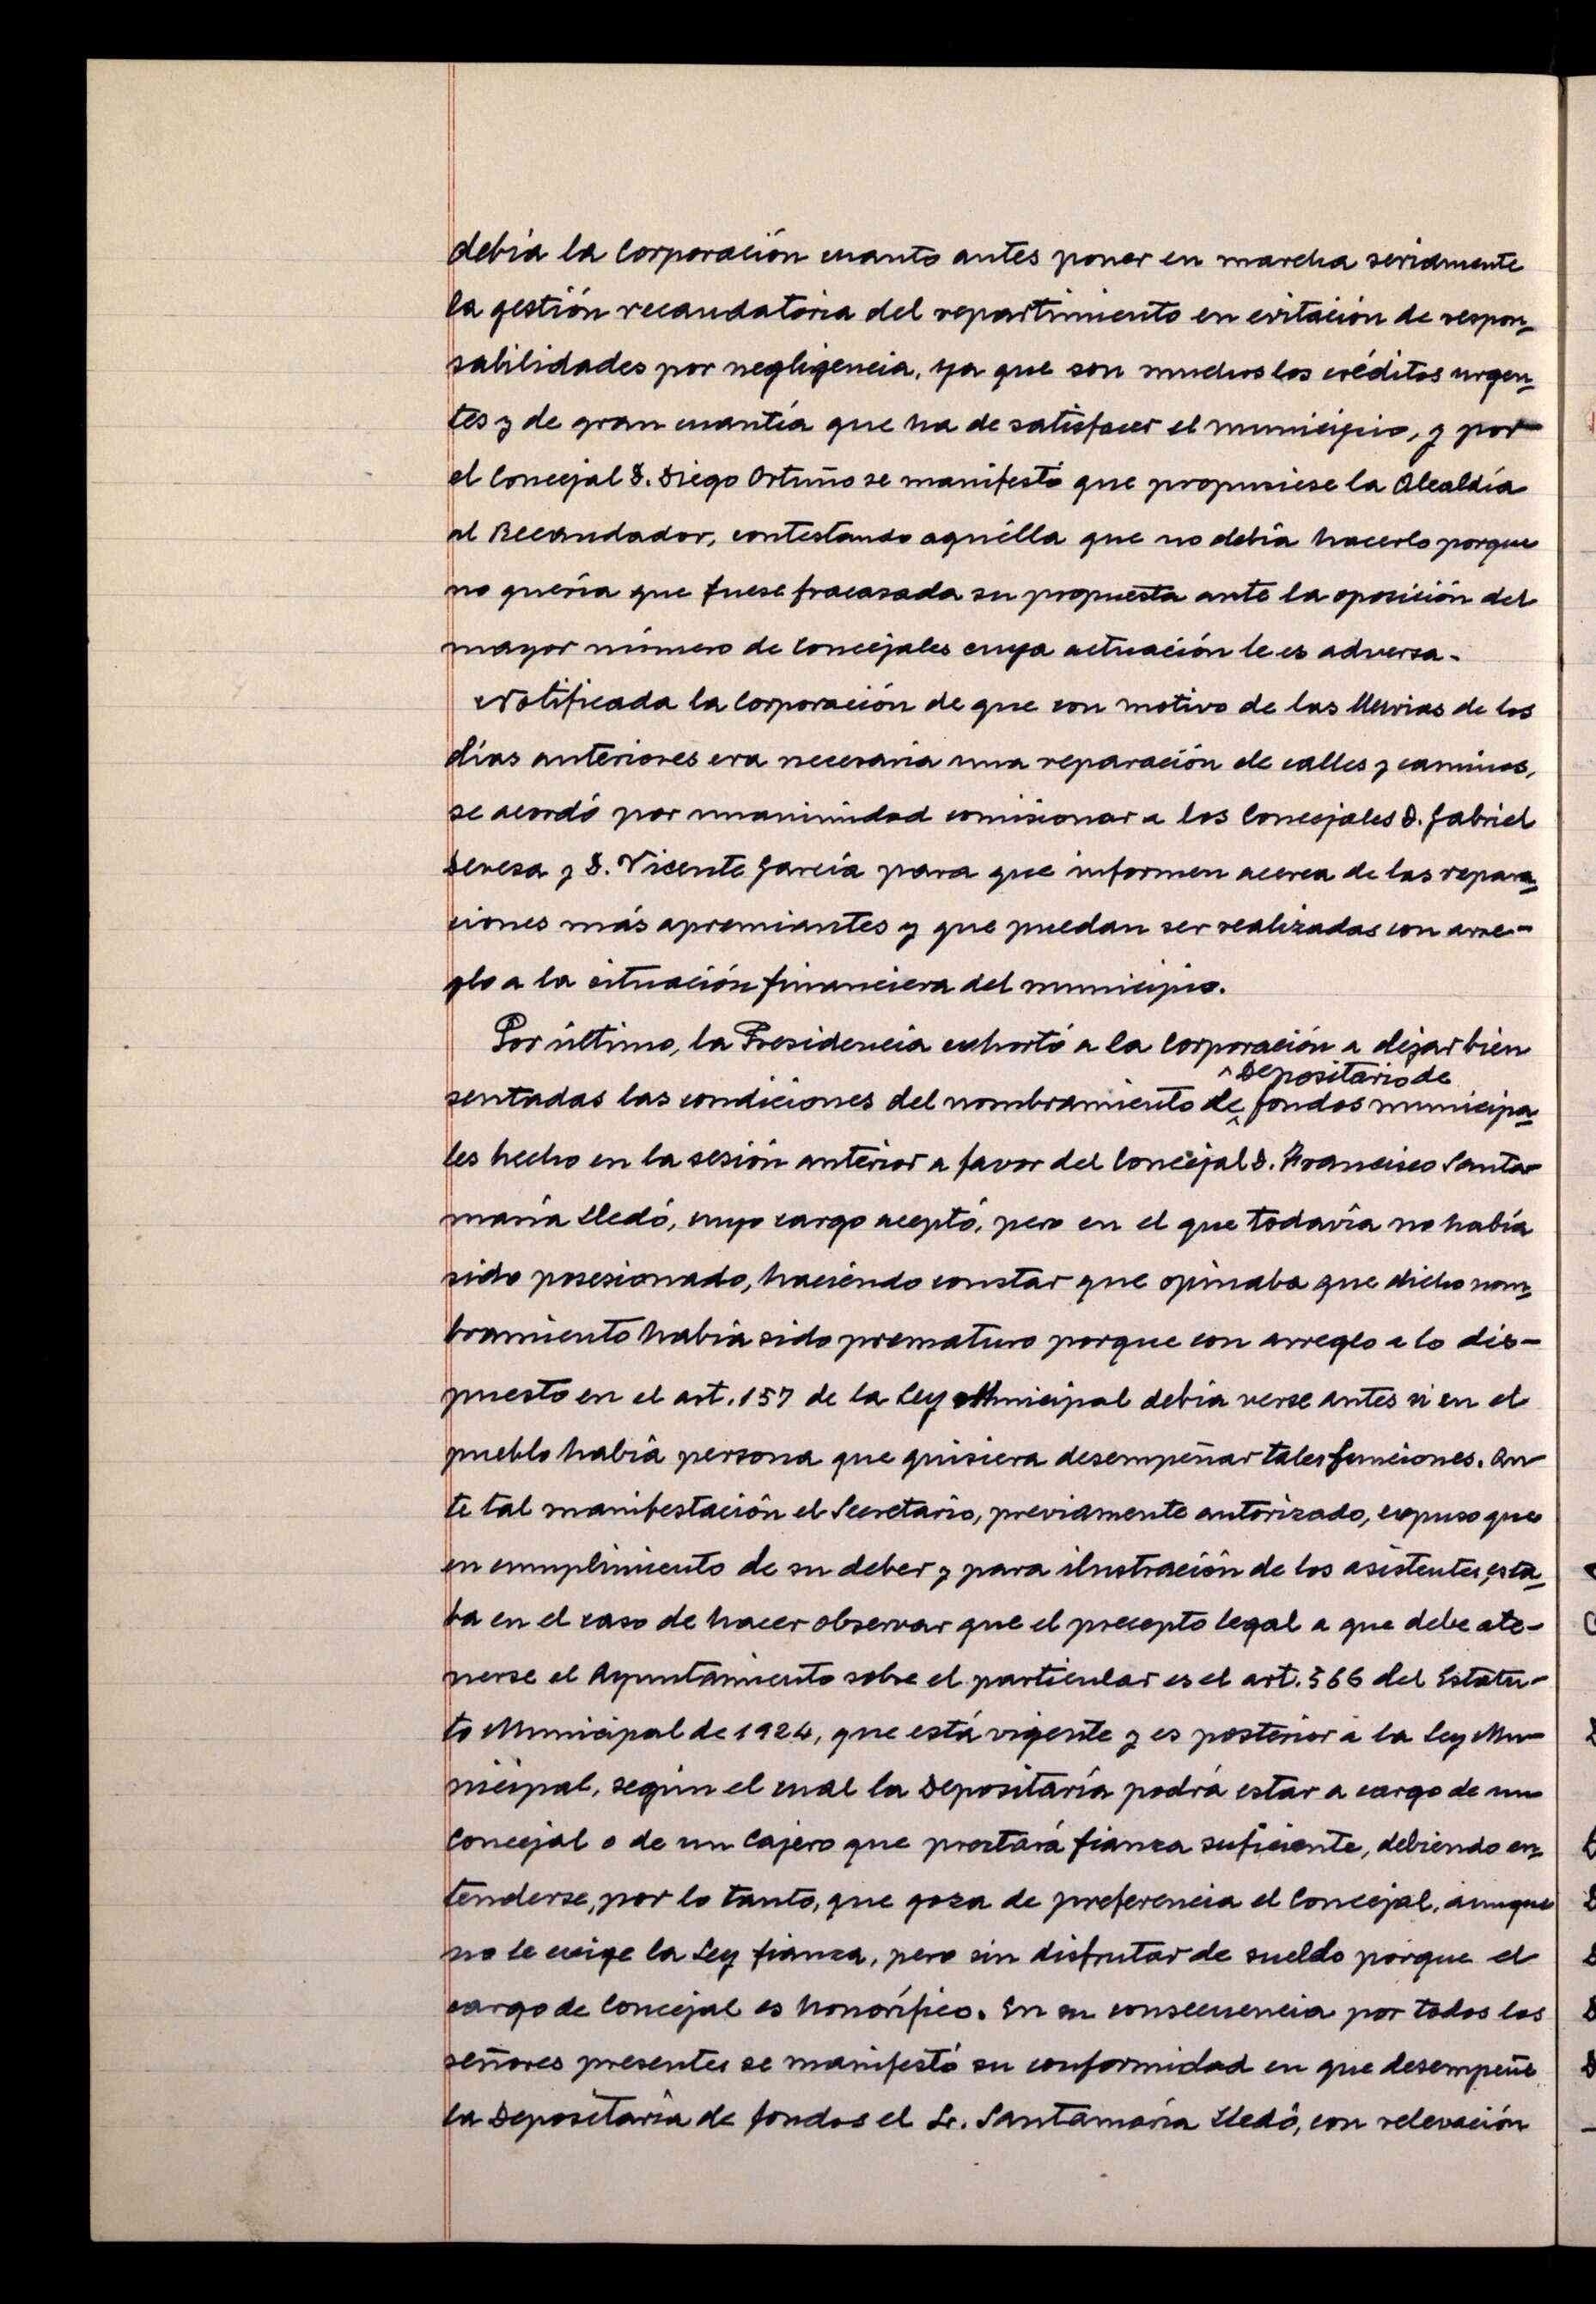 debía la Corporación cuanto antes poner en marcha seriamente
la gestión recaudatoria del repartimiento en evitación de respon-
sabilidades por negligencia, ya que son muchos los créditos urgen-
tes y de gran cuantía que ha de satisfacer el municipio, y por
el Concejal D. Diego Ortuño se manifestó que propusiese la Alcaldía
al Recaudador, contestando aquélla que no debía hacerlo porque
no quería que fuese fracasada su propuesta ante la oposición del
mayor número de Concejales cuya actuación le es adversa.
Notificada la Corporación de que con motivo de las lluvias de los
días anteriores era necesaria una reparación de calles y caminos,
se acordó por unanimidad comisionar a los Concejales D. Gabriel
Devesa y D. Vicente García para que informen acerca de las repara-
ciones más apremiantes y que puedan ser realizadas con arre-
glo a la situación financiera del municipio.
Por último, la Presidencia exhortó a la Corporación a dejar bien
^Depositario de
sentadas las condiciones del nombramiento de^ fondos municipa-
les hecho en la sesión anterior a favor del Concejal D. Francisco Santa
maría Lledó, cuyo cargo aceptó, pero en el que todavía no había
sido posesionado, haciendo constar que opinaba que dicho nom-
bramiento había sido prematuro porque con arreglo a lo dis-
puesto en el art. 157 de la Ley Municipal debía verse antes si en el
pueblo había persona que quisiera desempeñar tales funciones. An
te tal manifestación el Secretario, previamente autorizado, expuso que
en cumplimiento de su deber y para ilustración de los asistentes, esta-
ba en el caso de hacer observar que el precepto legal a que debe ate-
nerse el Ayuntamiento sobre el particular es el art. 566 del Estatu-
to Municipal de 1924, que está vigente y es posterior a la Ley Mu-
nicipal, según el cual la Depositaría podrá estar a cargo de un
Concejal o de un Cajero que prestará fianza suficiente, debiendo en-
tenderse, por lo tanto, que goza de preferencia el Concejal, aunque
no le exige la Ley fianza, pero sin disfrutar de sueldo porque el
cargo de Concejal es honorífico. En su consecuencia por todos los
señores presentes se manifestó su conformidad en que desempeñe
la Depositaría de fondos el Sr. Santamaría Lledó, con relevación